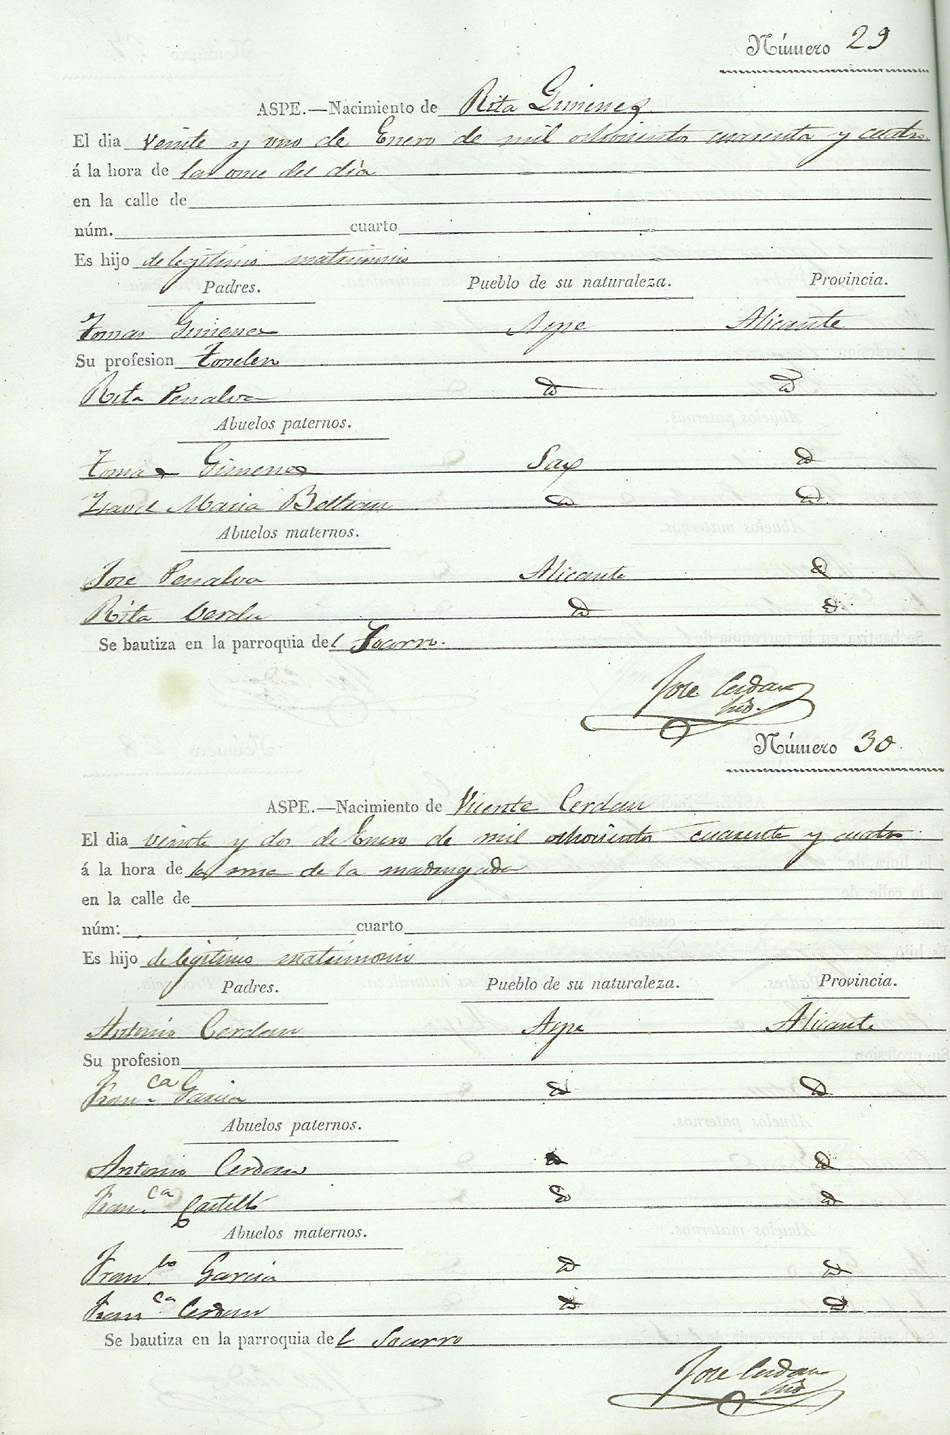 Número 29
ASPE.—Nacimiento de Rita Gimenez
El dia veinte y uno de Enero de mil ochocientos cuarenta y cuatro
á la hora de las once del dia
en la calle de
núm. cuarto
Es hijo de legitimo matrimonio
Padres. Pueblo de su naturaleza. Provincia.
Tomas Gimenez Aspe Alicante
Su profesion
Rita Penalva d d
Abuelos paternos.
Tomas Gimenez Sax d
Isavel Maria Beltran d d
Abuelos maternos.
Jose Penalva Alicante d
Rita Verdu d d
Se bautiza en la parroquia del Socorro.
Jose Cerdan
Número 30.
ASPE.—Nacimiento de Vicente Cerdan
El dia veinte y dos de Enero de mil ochocientos cuarenta y cuatro
á la hora de la una de la madrugada
en la calle de
núm: cuarto
Es hijo de legitimo matrimonio
Padres. Pueblo de su naturaleza. Provincia.
Antonio Cerdan Aspe Alicante
Su profesion
Fran.ca Garcia d d
Abuelos paternos.
Antonio Cerdan d d
Fran.ca Castelló d d
Abuelos maternos.
Fran.co Garcia d d
Fran.ca Cerdan d d
Se bautiza en la parroquia del Socorro
Jose Cerdan